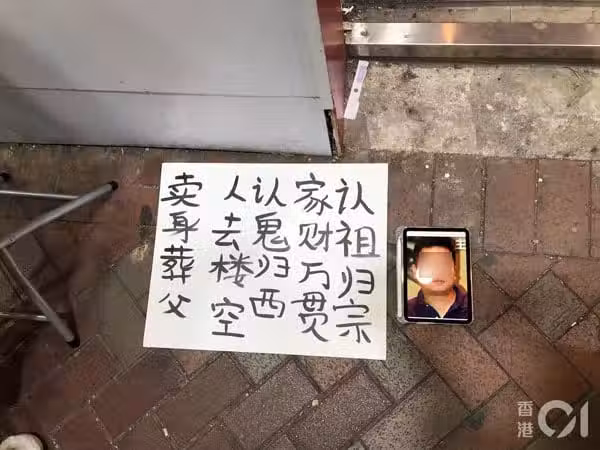 认祖归宗
家财万贯
认鬼归西
人去楼空
卖身葬父
香港01